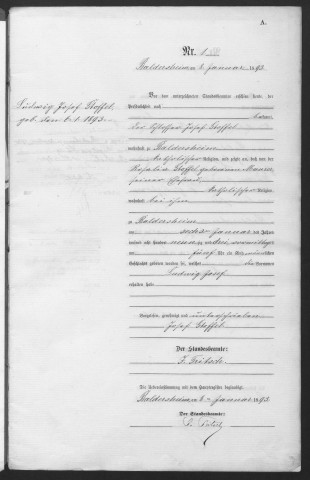 A.
Nr. 1
Baldersheim 6. Januar 1893
Ludwig Josef Stoffel
geb. den 6.1.1893.
Vor dem unterzeichneten Standesbeamten erschien heute, der
Persönlichkeit nach
kannt,
der Schlosser Josef Stoffel
wohnhaft zu Baldersheim
katholischer Religion, und zeigte an, daß von der
Rosalia Stoffel geborenen
seiner Ehefrau
katholischer Religion,
wohnhaft bei ihm
zu Baldersheim
am sechs Januar des Jahres
tausend acht hundert neunzig und drei, Vormittags
um fünf Uhr ein Kind männlichen
Geschlechts geboren worden sei, welches die Vornamen
Ludwig Josef
erhalten habe
Vorgelesen, genehmigt und unterschrieben
Josef Stoffel
Der Standesbeamte:
Die Uebereinstimmung mit dem Hauptregister beglaubigt
Baldersheim 6. Januar 1893
Der Standesbeamte: